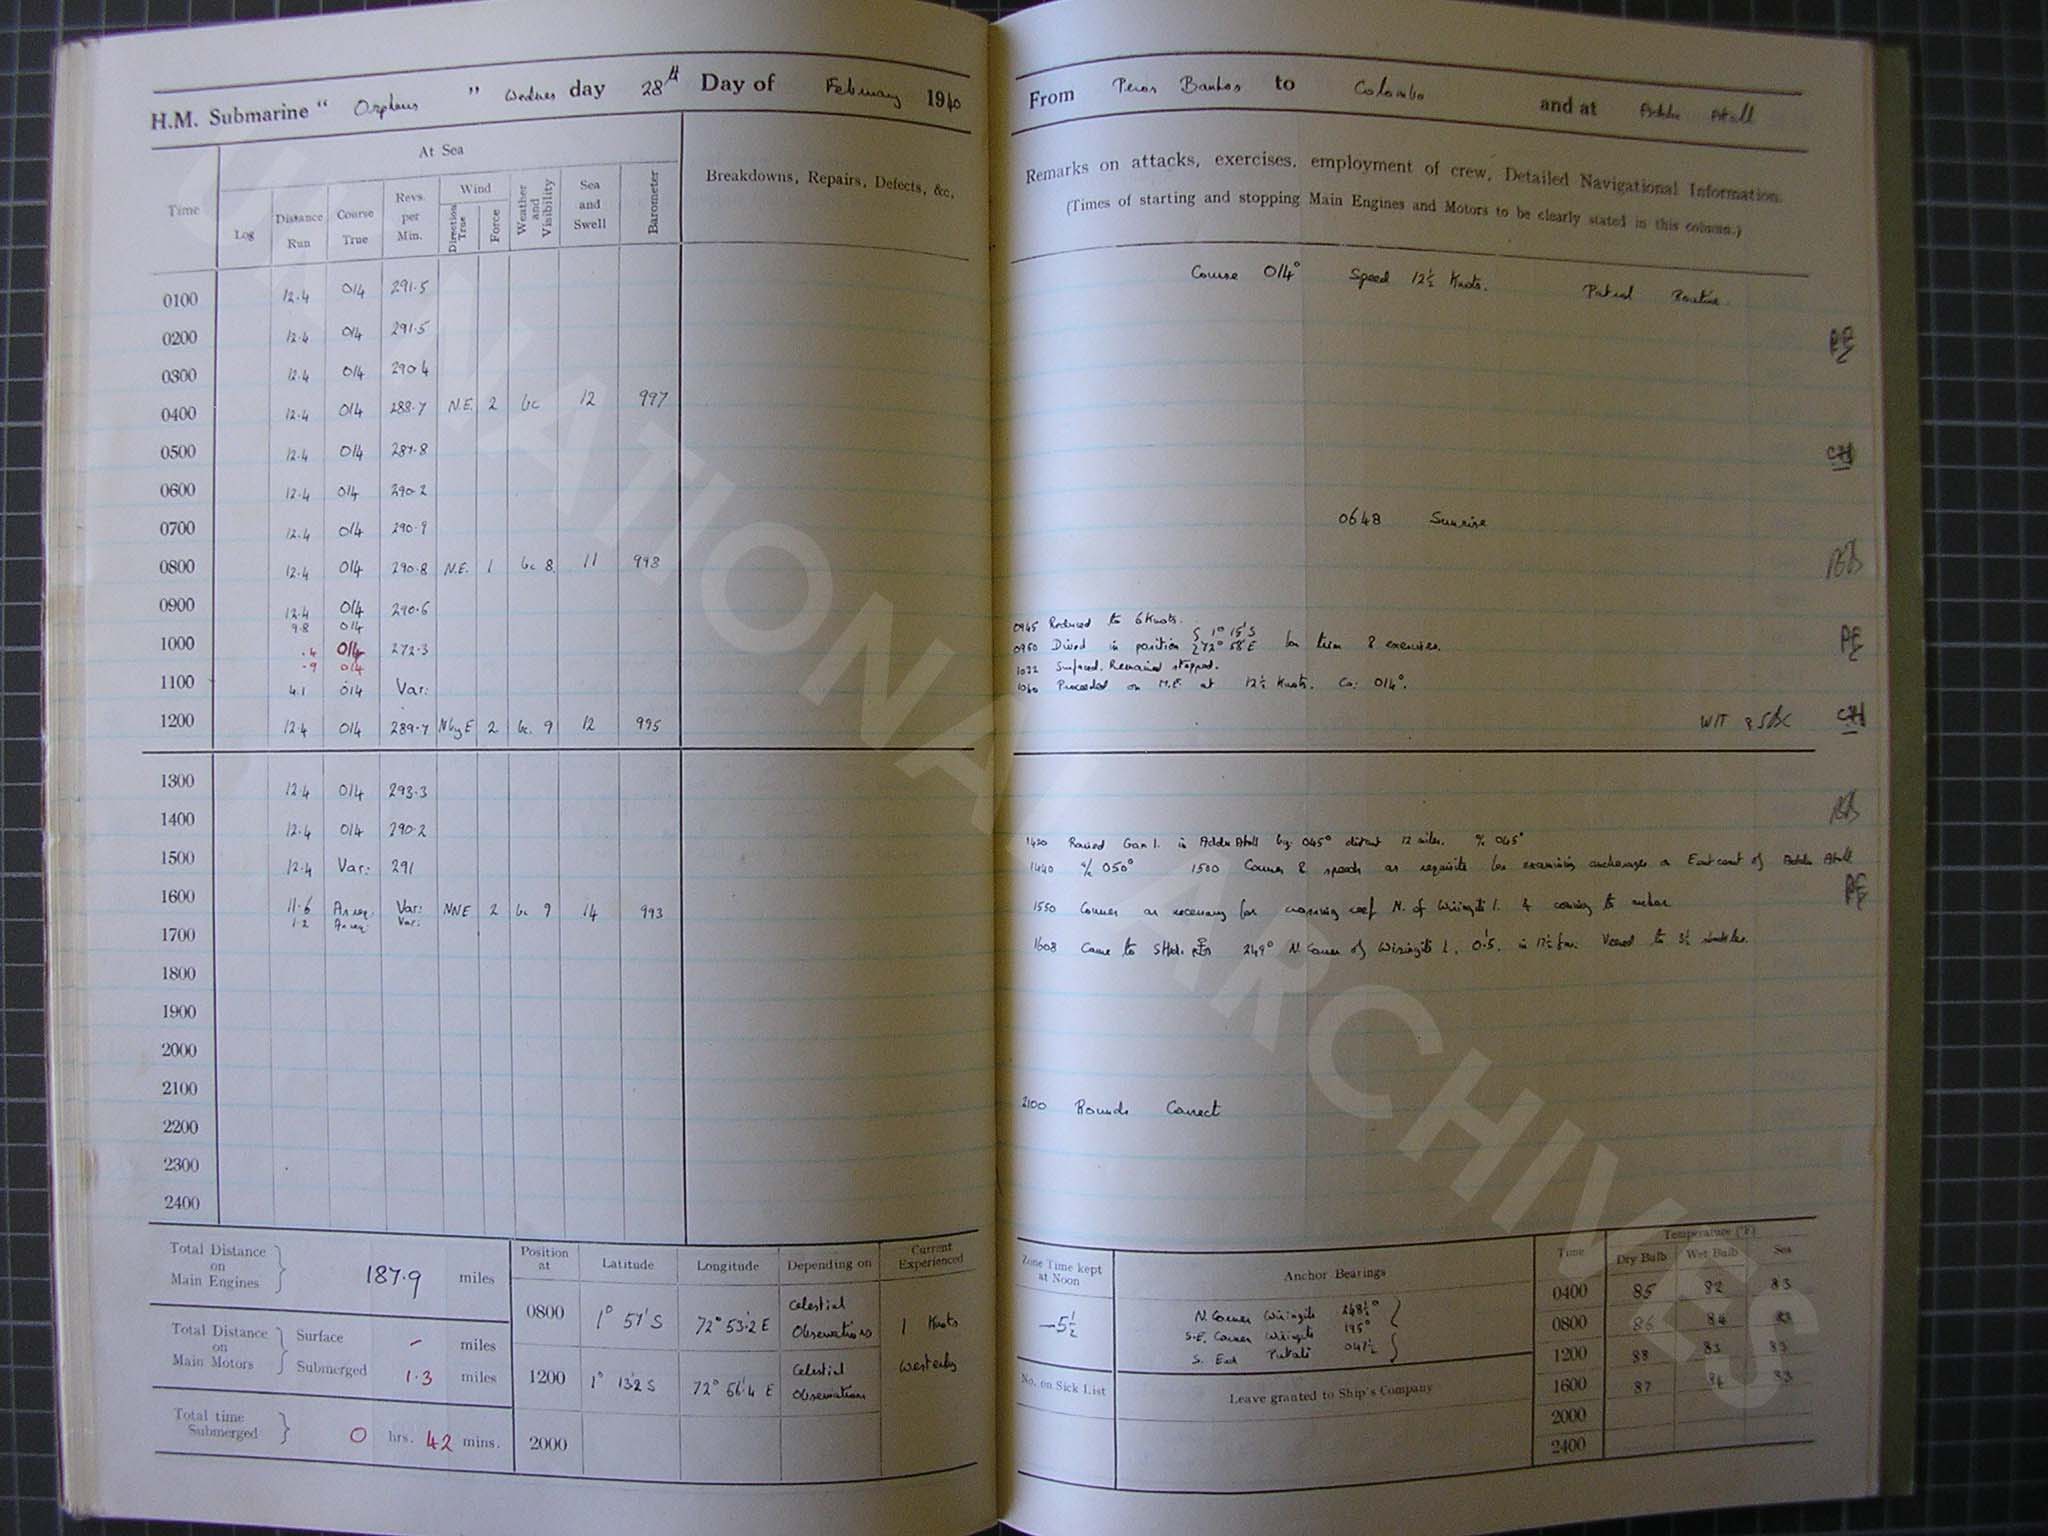 H.M. Submarine " Orpheus " Wednesday 28th Day of February 1940
At Sea
Time
Log
Distance Run
Course True
Revs. per Min.
Wind
Direction True
Force
Weather and Visibility
Sea and Swell
Barometer
Breakdowns, Repairs, Defects, &c.
0100 12.4 014 291.5
0200 12.4 014 291.5
0300 12.4 014 290.4
0400 12.4 014 288.7 N.E. 2 bc 12 997
0500 12.4 014 287.8
0600 12.4 014 290.2
0700 12.4 014 290.9
0800 12.4 014 290.8 N.E. 1 bc 8 11 998
0900 12.4 014 290.6
9.8 014
1000 .4 014 272.3
.9 014
1100 4.1 014 Var:
1200 12.4 014 289.7 NbyE 2 bc. 9 12 995
1300 12.4 014 293.3
1400 12.4 014 290.2
1500 12.4 Var: 291
1600 11.6 As req: Var: NNE 2 bc 9 14 993
1.2 As req: Var:
1700
1800
1900
2000
2100
2200
2300
2400
Total Distance on Main Engines } 187.9 miles
Total Distance on Main Motors } Surface - miles
Submerged 1.3 miles
Total time Submerged } 0 hrs. 42 mins.
Position at Latitude Longitude Depending on Current Experienced
0800 1° 51' S 72° 53.2 E Celestial Observations 1 Knots
1200 1° 13.2 S 72° 56'.4 E Celestial Observations Westerly
2000
From Peros Banhos to Colombo and at Addu Atoll
Remarks on attacks, exercises, employment of crew, Detailed Navigational Information.
(Times of starting and stopping Main Engines and Motors to be clearly stated in this column.)
Course 014° Speed 12½ Knots. Patrol Routine.
0648 Sunrise
0945 Reduced to 6 Knots.
0950 Dived in position { 1° 15' S 72° 58' E for trim & exercises.
1022 Surfaced. Remained stopped.
1040 Proceeded on M.E. at 12½ Knots. Co: 014°.
W/T
1420 Raised Gan I. in Addu Atoll bg. 045° distant 12 miles. a/c 045°
1440 a/c 050° 1500 Courses & speeds as requisite for examining anchorages on East coast of Addu Atoll
1550 Courses as necessary for crossing reef N. of Wiringili I. & coming to anchor
1608 Came to Stbd. 249° N. Corner of Wiringili I. 0.5. in 17½ fms. Veered to 3½ shackles.
2100 Rounds Correct
Zone Time kept at Noon
-5½
No. on Sick List
Anchor Bearings
N. Corner Wiringili 248½°
S.E. Corner Wiringili 195°
S. End 041½
Leave granted to Ship's Company
Temperature (°F)
Time Dry Bulb Wet Bulb Sea
0400 85 82 83
0800 86 84 83
1200 88 83 83
1600 87 84 83
2000
2400
THE NATIONAL ARCHIVES UK